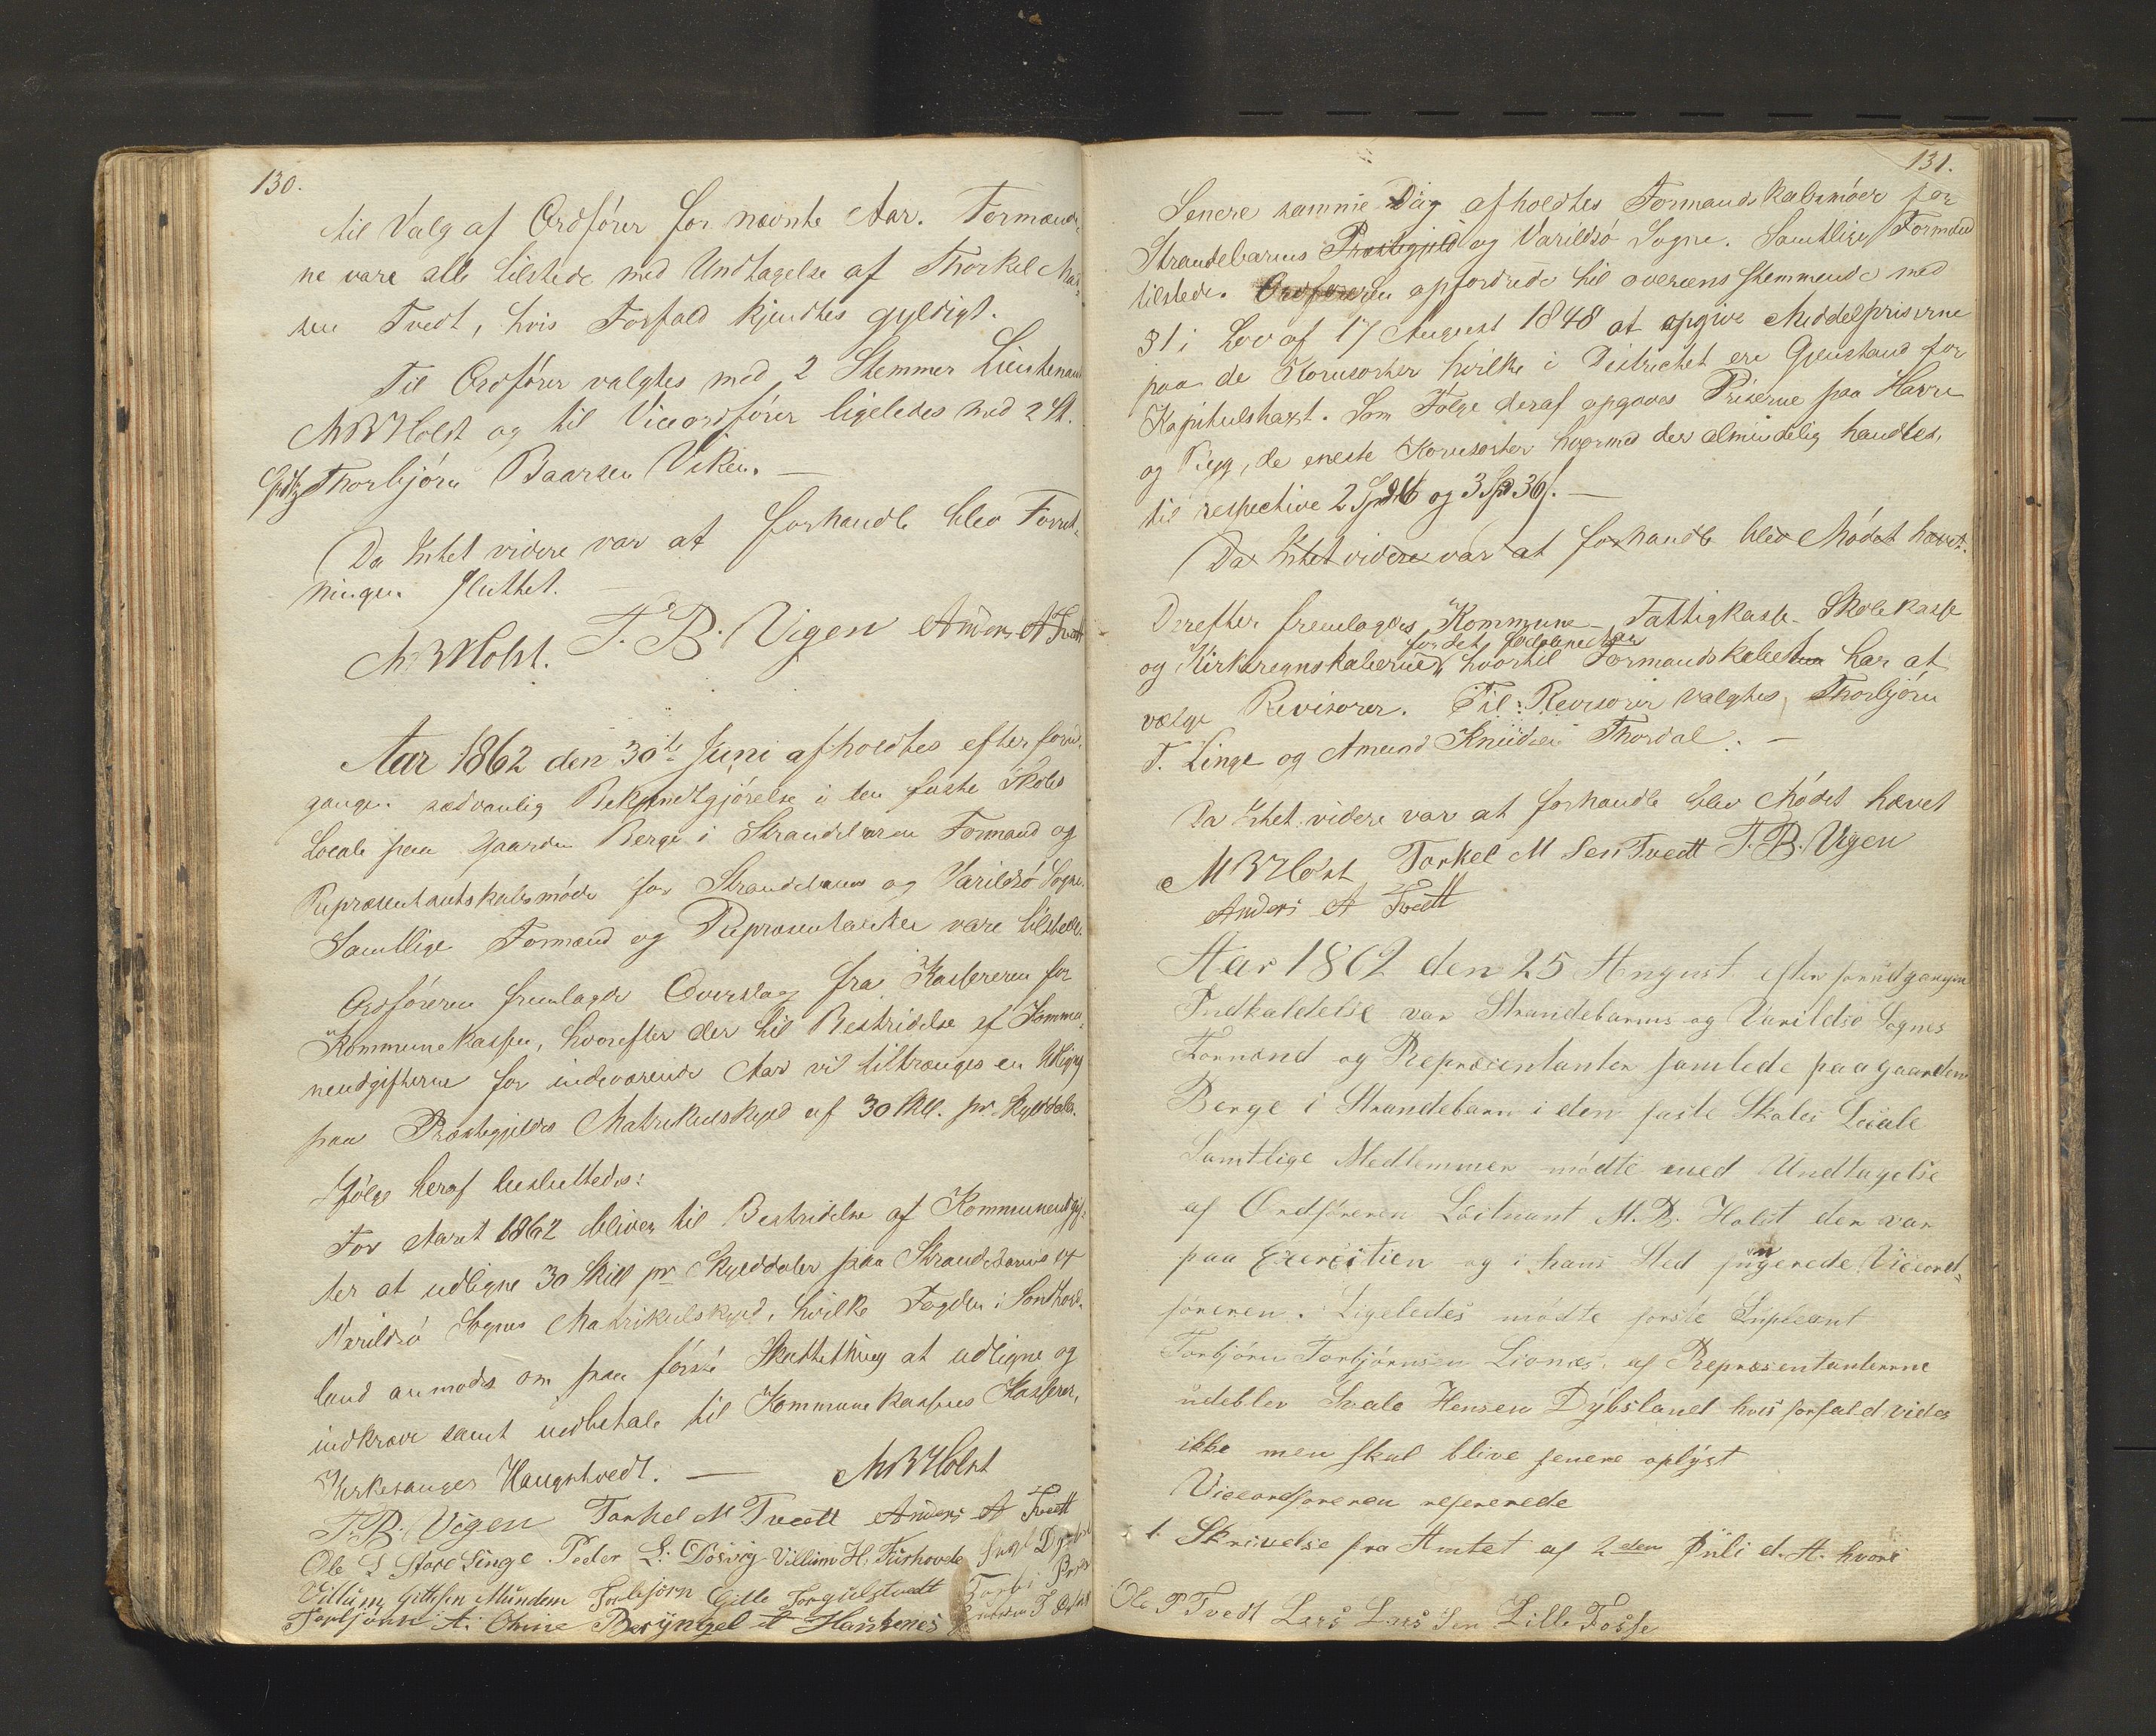 130.
til Valg af Ordfører for nævnte Aar. Formænde-
ne vare alle tilstede med Undtagelse af Thorkel Mad-
sen Tvedt, hvis Forfald kjendtes gyldigt.
Til Ordfører valgtes med 2 Stemmer Lieutenant
M B Holst og til Viceordfører ligeledes med 2 St.
Thorbjørn Baarsen Viken. —
Da Intet videre var at forhandle blev Forret-
ningen sluttet.
M B Holst. T. B. Vigen Anders A Tvedt
Aar 1862 den 30te Juni afholdtes efter forud-
gangen sædvanlig Bekjendtgjørelse i den faste Skoles
Locale paa Gaarden Berge i Strandebarm Formand og
Repræsentantskabsmøde for Strandebarms og Varildsø Sogne.
Samtlige Formænd og Repræsentanter vare tilstede.
Ordføreren fremlagde Overslag fra Kassereren for
Kommunekassen, hvorefter der til Bestridelse af Kommu-
neudgifterne for indeværende Aar vil tiltrænges en Udligng
paa Præstegjeldets Matrikulskyld af 30 Skll. pr. Skylddaler.
Ifølge heraf besluttedes:
For Aaret 1862 bliver til Bestridelse af Kommuneudgif-
ter at udligne 30 Skill pr Skylddaler paa Strandebarms og
Varildsø Sognes Matrikulskyld, hvilke Fogden i Søndhord-
land anmodes om paa første Skattething at udligne og
indkræve samt indbetale til Kommunekassens Kasserer,
Kirkesanger Haugstvedt. — M B Holst
T. B. Vigen Torkel M Tvedt Anders A Tvedt
Ole L Store Linge Peder L: Dösvig Villum H. Fürhovde
Villum Gittsen Mundem Torbjørn Gitle Torgulstvedt
Torbjörn A: Ohne Beryngel A Hansenes
131.
Senere samme Dag afholdtes Formandskabsmøer for
Strandebarms Præstegjeld og Varildsø Sogne. Samtlige Formænd
tilstede. Ordføreren opfordrede til overeensstemmende med
§ 1 i Lov af 17 August 1848 at opgive Middelpriserne
paa de Kornsorter hvilke i Districtet ere Gjenstand for
Kapitulstaxt. Som Følge deraf opgaves Priserne paa Havre
og Bygg, de eneste Kornsorter hvormed der almindelig handles,
til respective 2 Spdlr og 3 Spd 36 s. —
Da Intet videre var at forhandle blev Mødet hævet.
Derefter fremlagdes Kommune-, Fattigkasse- Skolekasse
for det forløbne Aar
og Kirkeregnskaberne hvortil Formandskabet har at
vælge Revisorer. Til Revisorer valgtes, Thorbjørn
T. Linge og Amund Knudsen Thordal. —
Da Intet videre var at forhandle blev Mødet hævet
M B Holst Torkel M Sen Tvedt T. B. Vigen
Anders A Tvedt
Aar 1862 den 25 August efter forudgangen
Indkaldelse var Strandebarms og Varildsø Sognes
Formænd og Repræsentanter samlede paa gaarden
Berge i Strandebarm i den faste Skoles Locale
Samtlige Medlemmer mødte med Undtagelse
af Ordføreren Løitnant M. B. Holst der var
paa Exercitien og i hans Sted fungerede Viceord-
føreren. Ligeledes mødte første Supleant
Torbjørn Torbjørnsen Lionæs. af Repræsentanterne
udeblev Svale Hensen Dybsland hvis forfald vides
ikke men skal blive senere oplyst
Viceordføreren refererede
1. Skrivelse fra Amtet af 2den Juli d. A. hvori
Ole P Tvedt Lars Lars Sen Lille Fosse